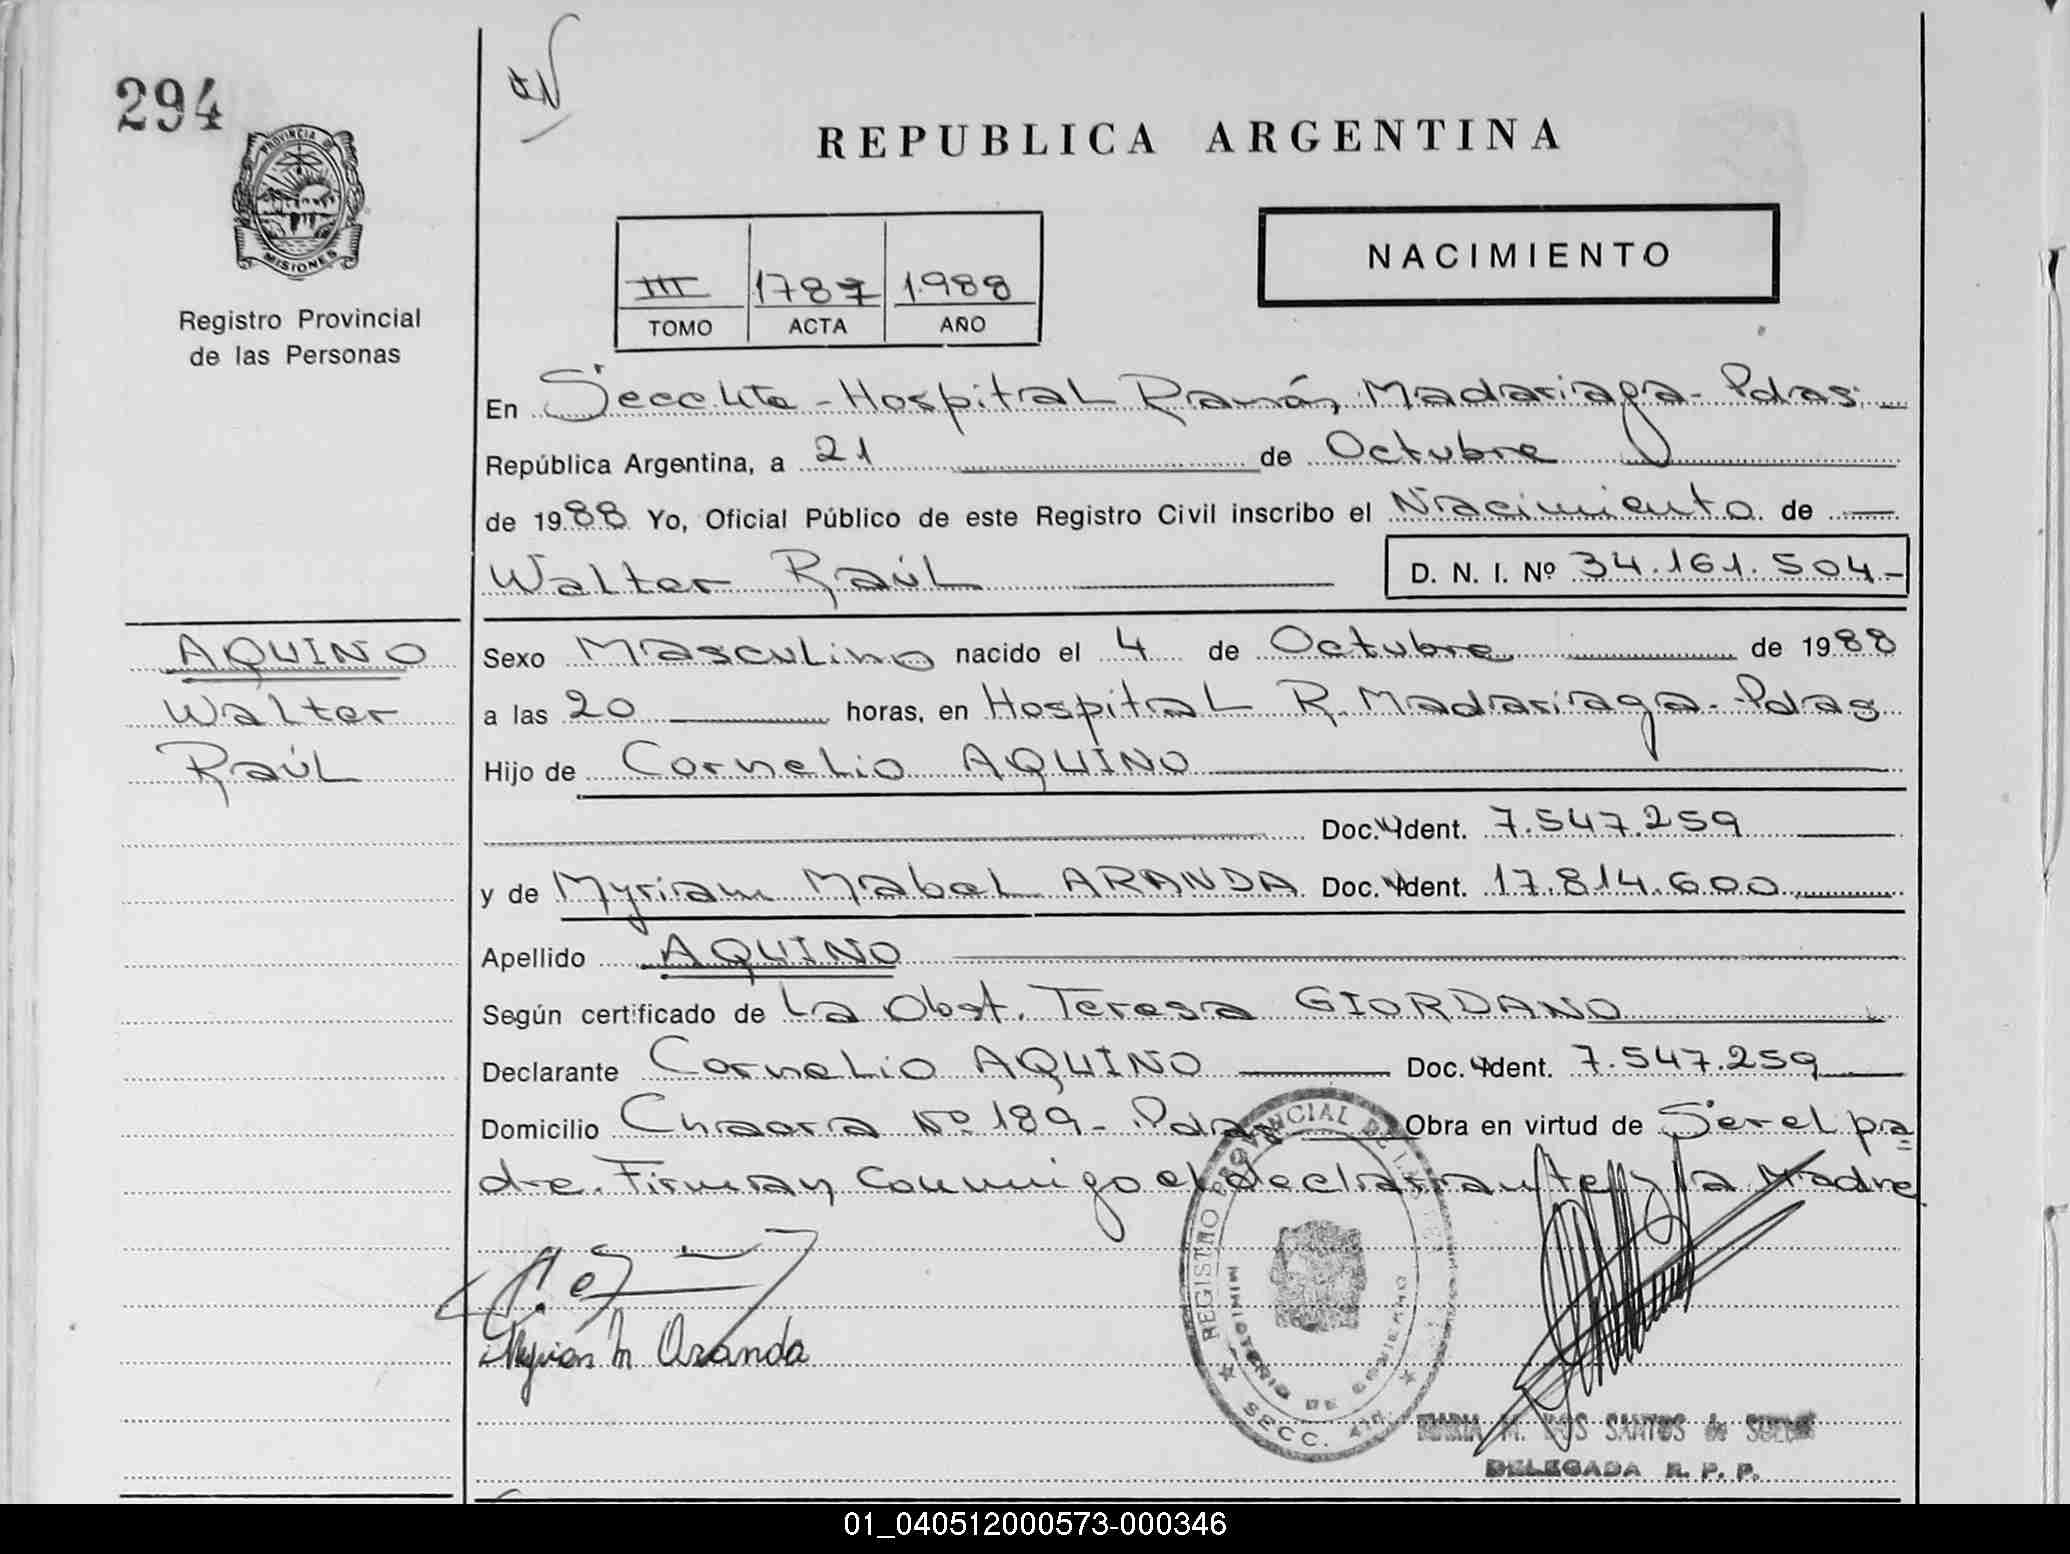 294
PROVINCIA DE
MISIONES
Registro Provincial
de las Personas
REPUBLICA ARGENTINA
NACIMIENTO
III 1787 1988
TOMO ACTA AÑO
En Secc. 4ta - Hospital Ramón Madariaga - Pdas. -
República Argentina, a 21 de Octubre
de 1988 Yo, Oficial Público de este Registro Civil inscribo el Nacimiento de
Walter Raúl D. N. I. Nº 34.161.504-
AQUINO
Walter
Raúl
Sexo Masculino nacido el 4 de Octubre de 1988
a las 20 horas, en Hospital R. Madariaga - Pdas
Hijo de Cornelio AQUINO
Doc. Ident. 7.547.259
y de Myriam Mabel ARANDA Doc. Ident. 17.814.600
Apellido AQUINO
Según certificado de La Obst. Teresa GIORDANO
Declarante Cornelio AQUINO Doc. Ident. 7.547.259
Domicilio Chacra Nº 189 - Pdas Obra en virtud de Ser el pa=
dre. Firman conmigo el declarante y la Madre
Myrian M Aranda
REGISTRO PROVINCIAL DE LAS
MINISTERIO DE GOBIERNO
SECC. 4ta.
MARIA M. DOS SANTOS de
DELEGADA R. P. P.
01_040512000573-000346